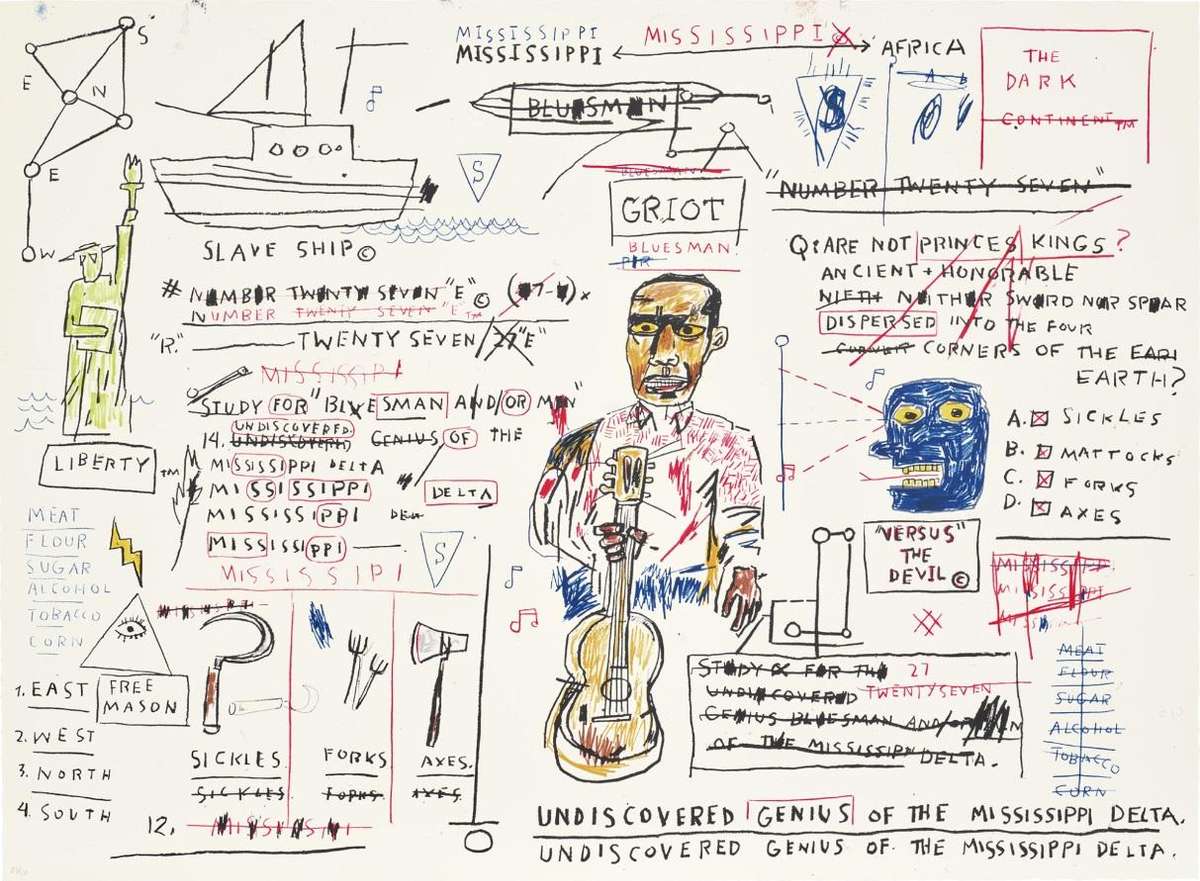 S
E
N
E
W
MISSISSIPPI
MISSISSIPPI
MISSISSIPPI
AFRICA
THE
DARK
CONTINENT™
BLUESMAN
S
A B
S
BLUESMAN
GRIOT
BLUESMAN
"NUMBER TWENTY SEVEN"
SLAVE SHIP©
# NUMBER TWENTY SEVEN "E"©
NUMBER TWENTY SEVEN "E™
"R." TWENTY SEVEN/27"E"
MISSISSIPI
STUDY FOR "BLUESMAN AND/OR MEN"
UNDISCOVERED
14. UNDISCOVERED GENIUS OF THE
MISSISSIPPI DELTA
MISSISSIPPI DELTA
MISSISSIPPI DEL
MISSISSIPPI
MISSISSIPI
S
LIBERTY™
MEAT
FLOUR
SUGAR
ALCOHOL
TOBACCO
CORN
FREE
MASON
1. EAST
2. WEST
3. NORTH
4. SOUTH
SICKLES.
SICKLES
FORKS
FORKS.
AXES.
AXES
12.
Q: ARE NOT PRINCES KINGS?
ANCIENT + HONORABLE
NIETH NEITHER SWORD NOR SPEAR
DISPERSED INTO THE FOUR
CORNER CORNERS OF THE EARI
EARTH?
A. SICKLES
B. MATTOCKS
C. FORKS
D. AXES
"VERSUS"
THE
DEVIL©
MISSISSIPPI
MEAT
FLOUR
SUGAR
ALCOHOL
TOBACCO
CORN
STUDY FOR THE 27
UNDISCOVERED TWENTYSEVEN
GENIUS BLUESMAN AND/OR
OF THE MISSISSIPPI DELTA.
UNDISCOVERED GENIUS OF THE MISSISSIPPI DELTA.
UNDISCOVERED GENIUS OF THE MISSISSIPPI DELTA.